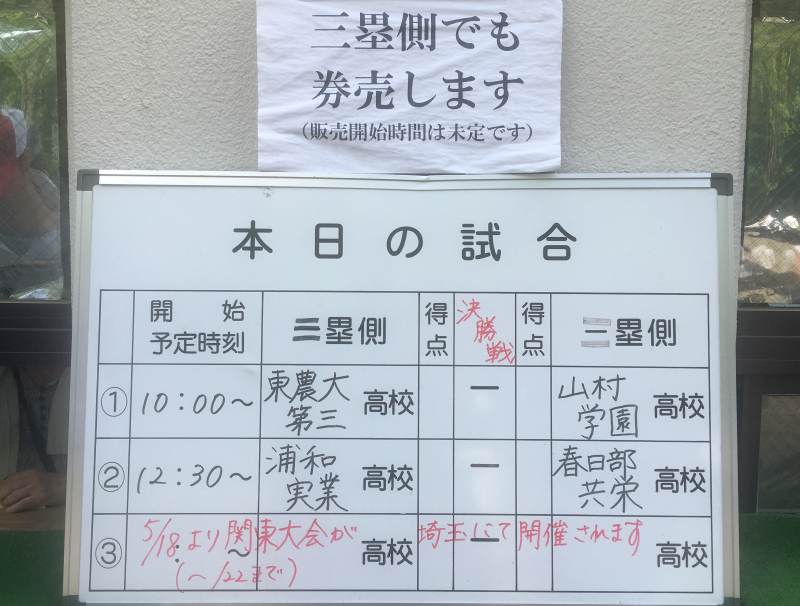 三塁側でも
券売します
(販売開始時間は未定です)
本日の試合
開始
予定時刻
三塁側
得点
決勝戦
得点
一塁側
① 10:00〜 東農大第三 高校 ー 山村学園 高校
② 12:30〜 浦和実業 高校 ー 春日部共栄 高校
③ : 〜 高校 ー 高校
5/18より関東大会が埼玉にて開催されます
(〜/22まで)